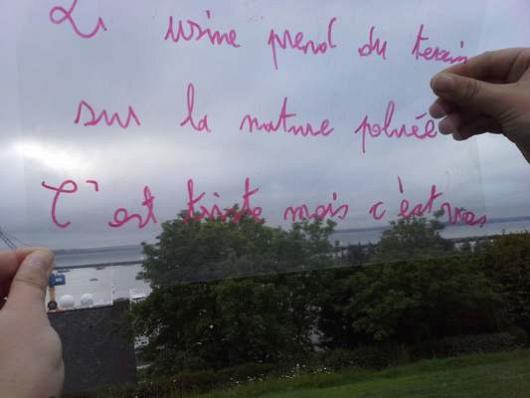 L' usine prend du terrain
sur la nature poluée
C'est triste mais c'est vrai